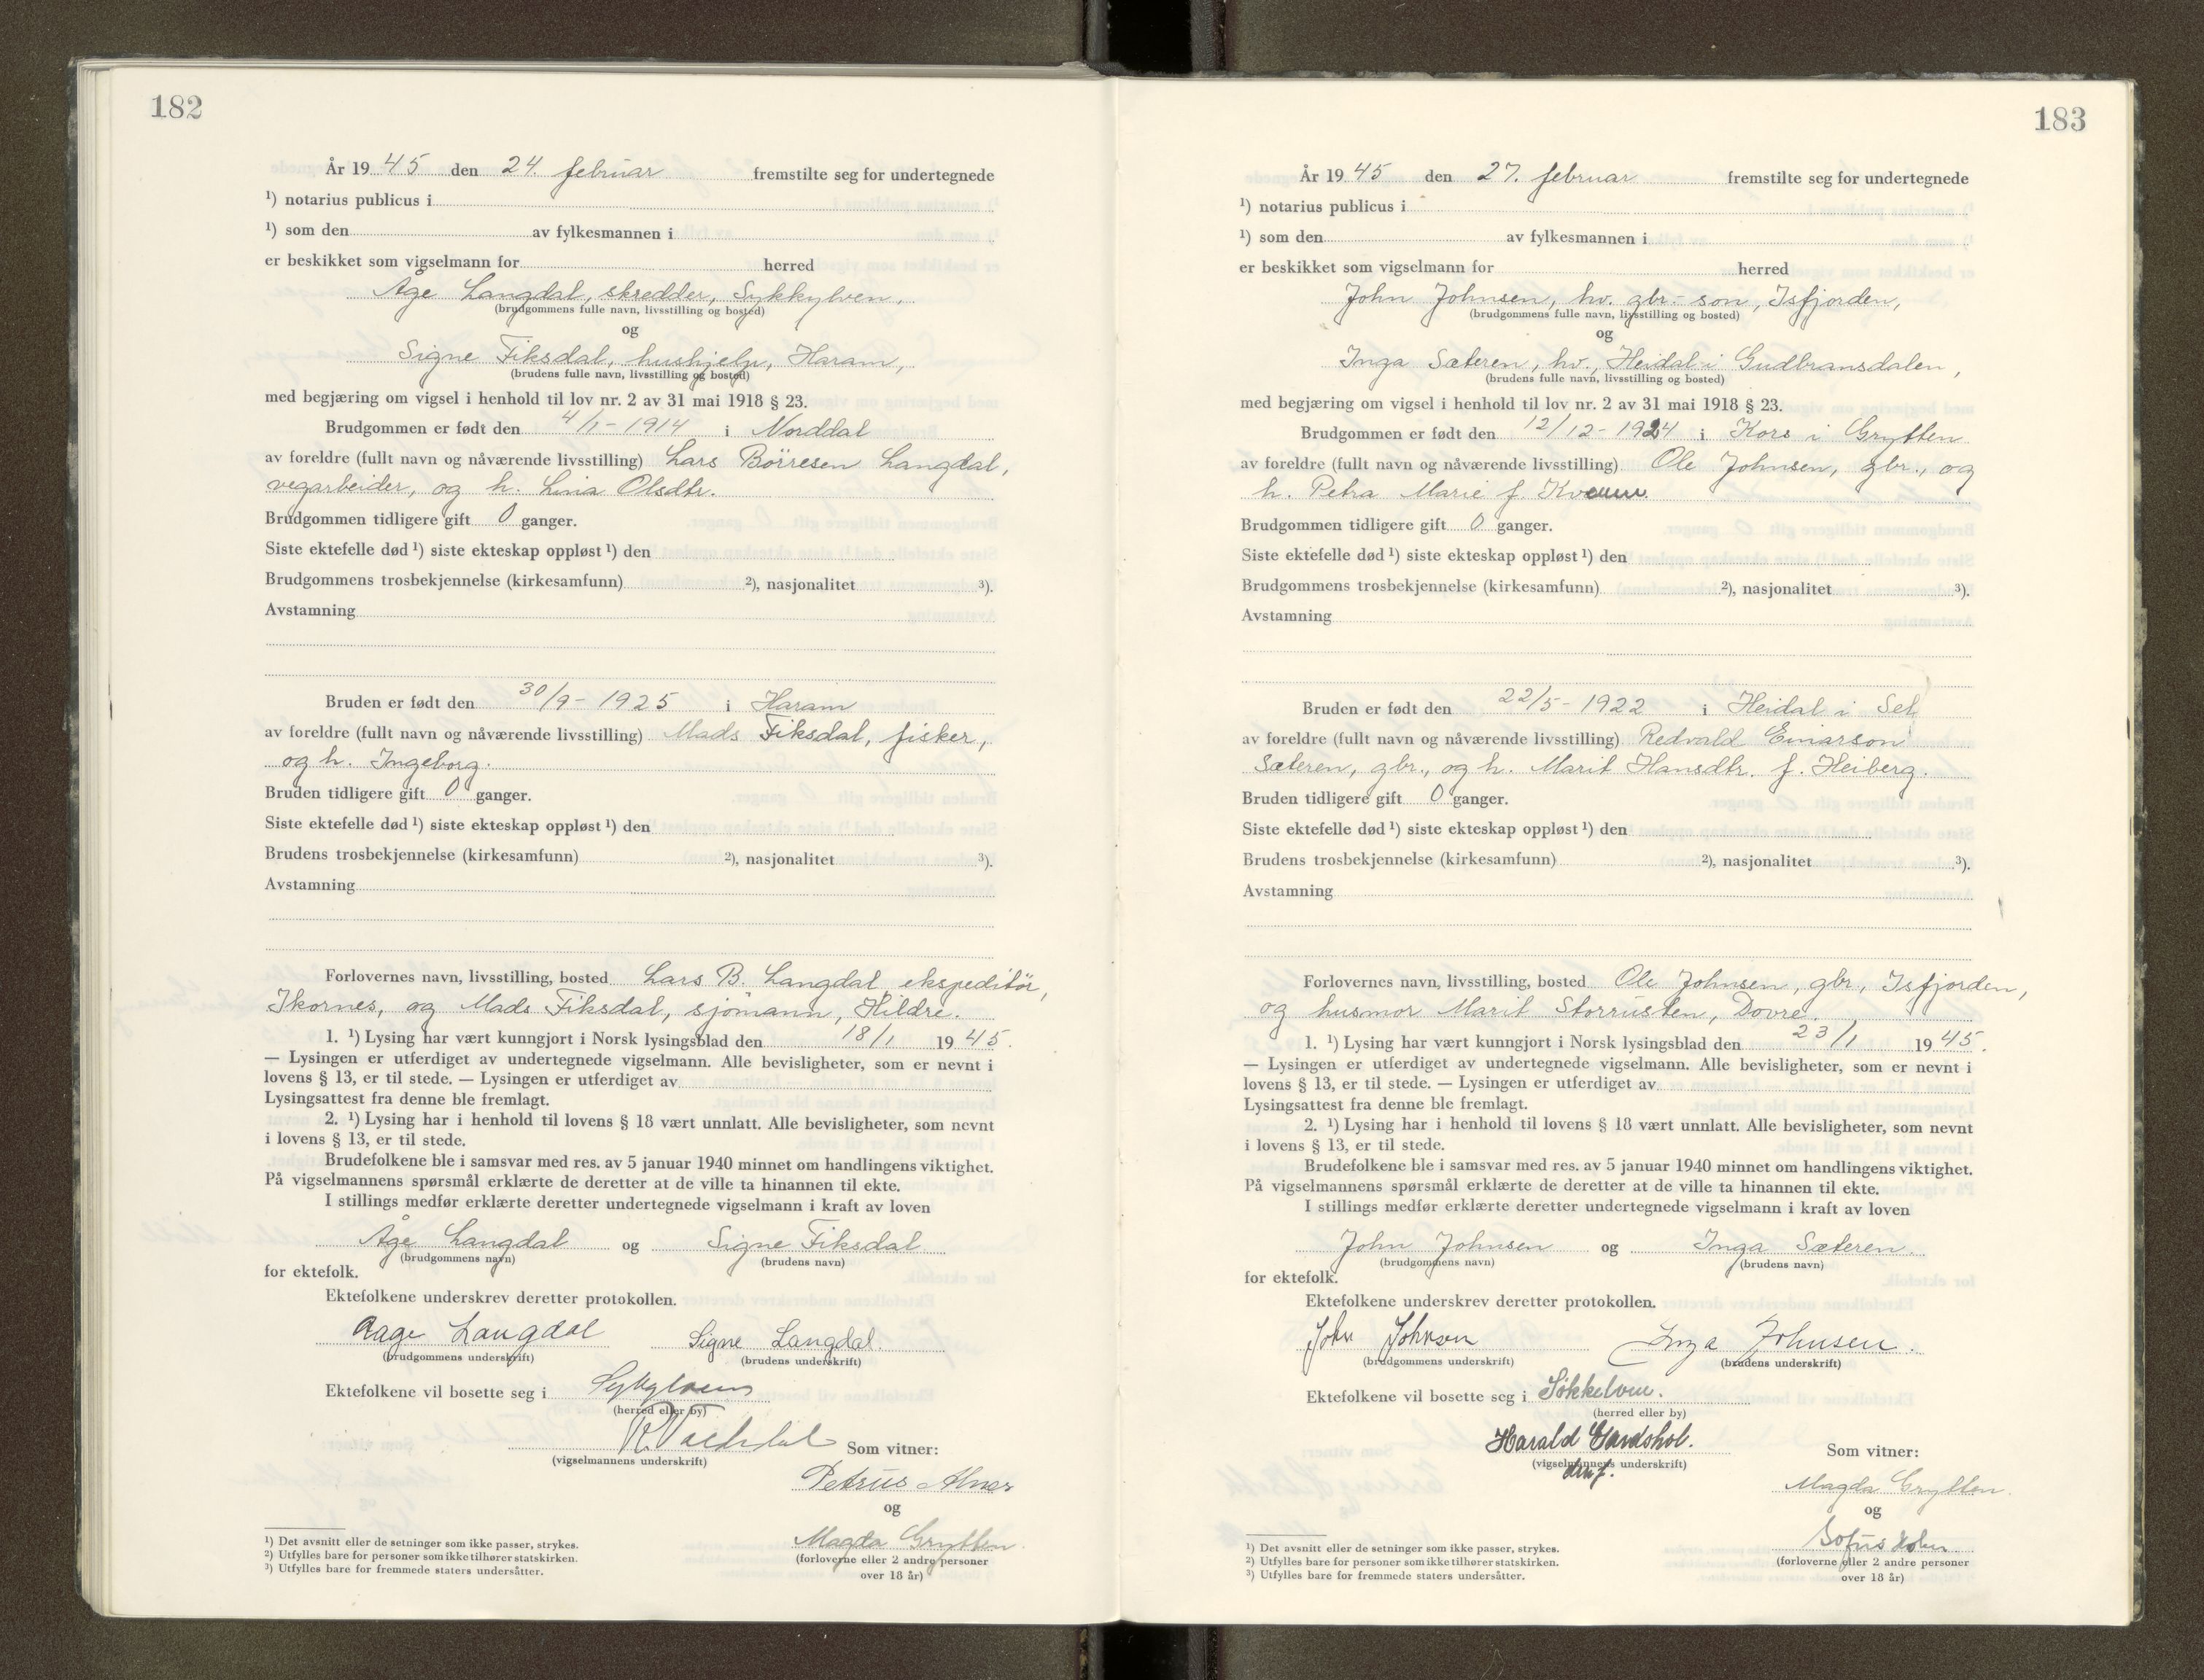 182
År 19 45 den 24. februar fremstilte seg for undertegnede
¹) notarius publicus i
¹) som den av fylkesmannen i
er beskikket som vigselmann for herred
Åge Langdal, skredder, Sykkylven,
(brudgommens fulle navn, livsstilling og bosted)
og
Signe Fiksdal, hushjelp, Haram,
(brudens fulle navn, livsstilling og bosted)
med begjæring om vigsel i henhold til lov nr. 2 av 31 mai 1918 § 23.
Brudgommen er født den 4/1 - 1914 i Norddal
av foreldre (fullt navn og nåværende livsstilling) Lars Börresen Langdal,
vegarbeider, og h. Lina Olsdtr.
Brudgommen tidligere gift 0 ganger.
Siste ektefelle død ¹) siste ekteskap oppløst ¹) den
Brudgommens trosbekjennelse (kirkesamfunn) ²), nasjonalitet ³).
Avstamning
Bruden er født den 30/9 - 1925 i Haram
av foreldre (fullt navn og nåværende livsstilling) Mads Fiksdal, fisker,
og h. Ingeborg.
Bruden tidligere gift 0 ganger.
Siste ektefelle død ¹) siste ekteskap oppløst ¹) den
Brudens trosbekjennelse (kirkesamfunn) ²), nasjonalitet ³).
Avstamning
Forlovernes navn, livsstilling, bosted Lars B. Langdal, ekspeditör,
Ikornes, og Mads Fiksdal, sjömann, Hildre.
1. ¹) Lysing har vært kunngjort i Norsk lysingsblad den 18/1 19 45.
— Lysingen er utferdiget av undertegnede vigselmann. Alle bevisligheter, som er nevnt i
lovens § 13, er til stede. — Lysingen er utferdiget av
Lysingsattest fra denne ble fremlagt.
2. ¹) Lysing har i henhold til lovens § 18 vært unnlatt. Alle bevisligheter, som nevnt
i lovens § 13, er til stede.
Brudefolkene ble i samsvar med res. av 5 januar 1940 minnet om handlingens viktighet.
På vigselmannens spørsmål erklærte de deretter at de ville ta hinannen til ekte.
I stillings medfør erklærte deretter undertegnede vigselmann i kraft av loven
Åge Langdal og Signe Fiksdal
(brudgommens navn) (brudens navn)
for ektefolk.
Ektefolkene underskrev deretter protokollen.
Aage Langdal Signe Langdal.
(brudgommens underskrift) (brudens underskrift)
Ektefolkene vil bosette seg i
(herred eller by)
Som vitner:
(vigselmannens underskrift)
Petrus
og
Magda Grytten
(forloverne eller 2 andre personer
over 18 år)
¹) Det avsnitt eller de setninger som ikke passer, strykes.
²) Utfylles bare for personer som ikke tilhører statskirken.
³) Utfylles bare for fremmede staters undersåtter.
183
År 19 45 den 27. februar fremstilte seg for undertegnede
¹) notarius publicus i
¹) som den av fylkesmannen i
er beskikket som vigselmann for herred
John Johnsen, hv. gbr.-son, Isfjorden,
(brudgommens fulle navn, livsstilling og bosted)
og
Inga Sæteren, hv., Heidal i Gudbransdalen,
(brudens fulle navn, livsstilling og bosted)
med begjæring om vigsel i henhold til lov nr. 2 av 31 mai 1918 § 23.
Brudgommen er født den 12/12 - 1924 i Kors i Grytten
av foreldre (fullt navn og nåværende livsstilling) Ole Johnsen, gbr., og
h. Petra Marie f. Kvam
Brudgommen tidligere gift 0 ganger.
Siste ektefelle død ¹) siste ekteskap oppløst ¹) den
Brudgommens trosbekjennelse (kirkesamfunn) ²), nasjonalitet ³).
Avstamning
Bruden er født den 22/5 - 1922 i Heidal i Sel
av foreldre (fullt navn og nåværende livsstilling) Redvald Einarson
Sæteren, gbr., og h. Marit Hansdtr. f. Heiberg.
Bruden tidligere gift 0 ganger.
Siste ektefelle død ¹) siste ekteskap oppløst ¹) den
Brudens trosbekjennelse (kirkesamfunn) ²), nasjonalitet ³).
Avstamning
Forlovernes navn, livsstilling, bosted Ole Johnsen, gbr., Isfjorden,
og husmor Marit Storrusten, Dovre.
1. ¹) Lysing har vært kunngjort i Norsk lysingsblad den 23/1 19 45.
— Lysingen er utferdiget av undertegnede vigselmann. Alle bevisligheter, som er nevnt i
lovens § 13, er til stede. — Lysingen er utferdiget av
Lysingsattest fra denne ble fremlagt.
2. ¹) Lysing har i henhold til lovens § 18 vært unnlatt. Alle bevisligheter, som nevnt
i lovens § 13, er til stede.
Brudefolkene ble i samsvar med res. av 5 januar 1940 minnet om handlingens viktighet.
På vigselmannens spørsmål erklærte de deretter at de ville ta hinannen til ekte.
I stillings medfør erklærte deretter undertegnede vigselmann i kraft av loven
John Johnsen og Inga Sæteren.
(brudgommens navn) (brudens navn)
for ektefolk.
Ektefolkene underskrev deretter protokollen.
John Johnsen Inga Johnsen.
(brudgommens underskrift) (brudens underskrift)
Ektefolkene vil bosette seg i Søkkelven.
(herred eller by)
Harald
Som vitner:
(vigselmannens underskrift)
Magda Grytten.
og
Sofus
(forloverne eller 2 andre personer
over 18 år)
¹) Det avsnitt eller de setninger som ikke passer, strykes.
²) Utfylles bare for personer som ikke tilhører statskirken.
³) Utfylles bare for fremmede staters undersåtter.